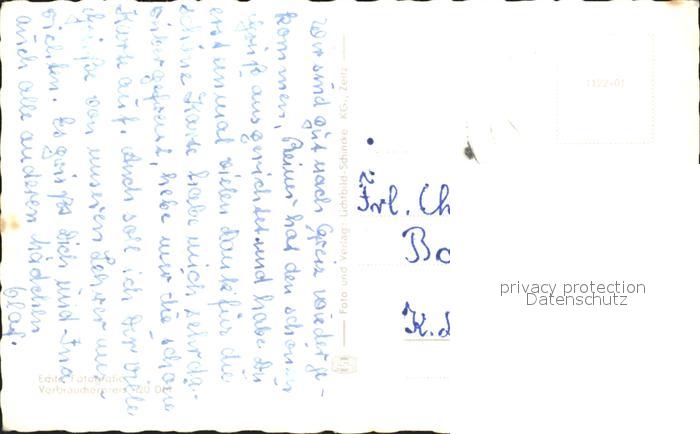 Wir sind gut nach Gera wiederge-
kommen, Reiner hat den schönen
Gruß ausgerichtet und habe Du
erst einmal vielen Dank für die
schöne Karte habe mich sehr da-
rüber gefreut, hebe mir die schöne
Karte auf. Auch soll ich Dir viele
Grüße von unseren Lehrer aus-
richten. Es grüßt Dich und Ina
auch alle anderen Mädchen
Olaf.
Foto und Verlag: Lichtbild-Schincke KG., Zeitz
Echte Fotografie
Verbraucherpreis 0,20 DM
Frl. Ch
Ba
K.
privacy protection
Datenschutz